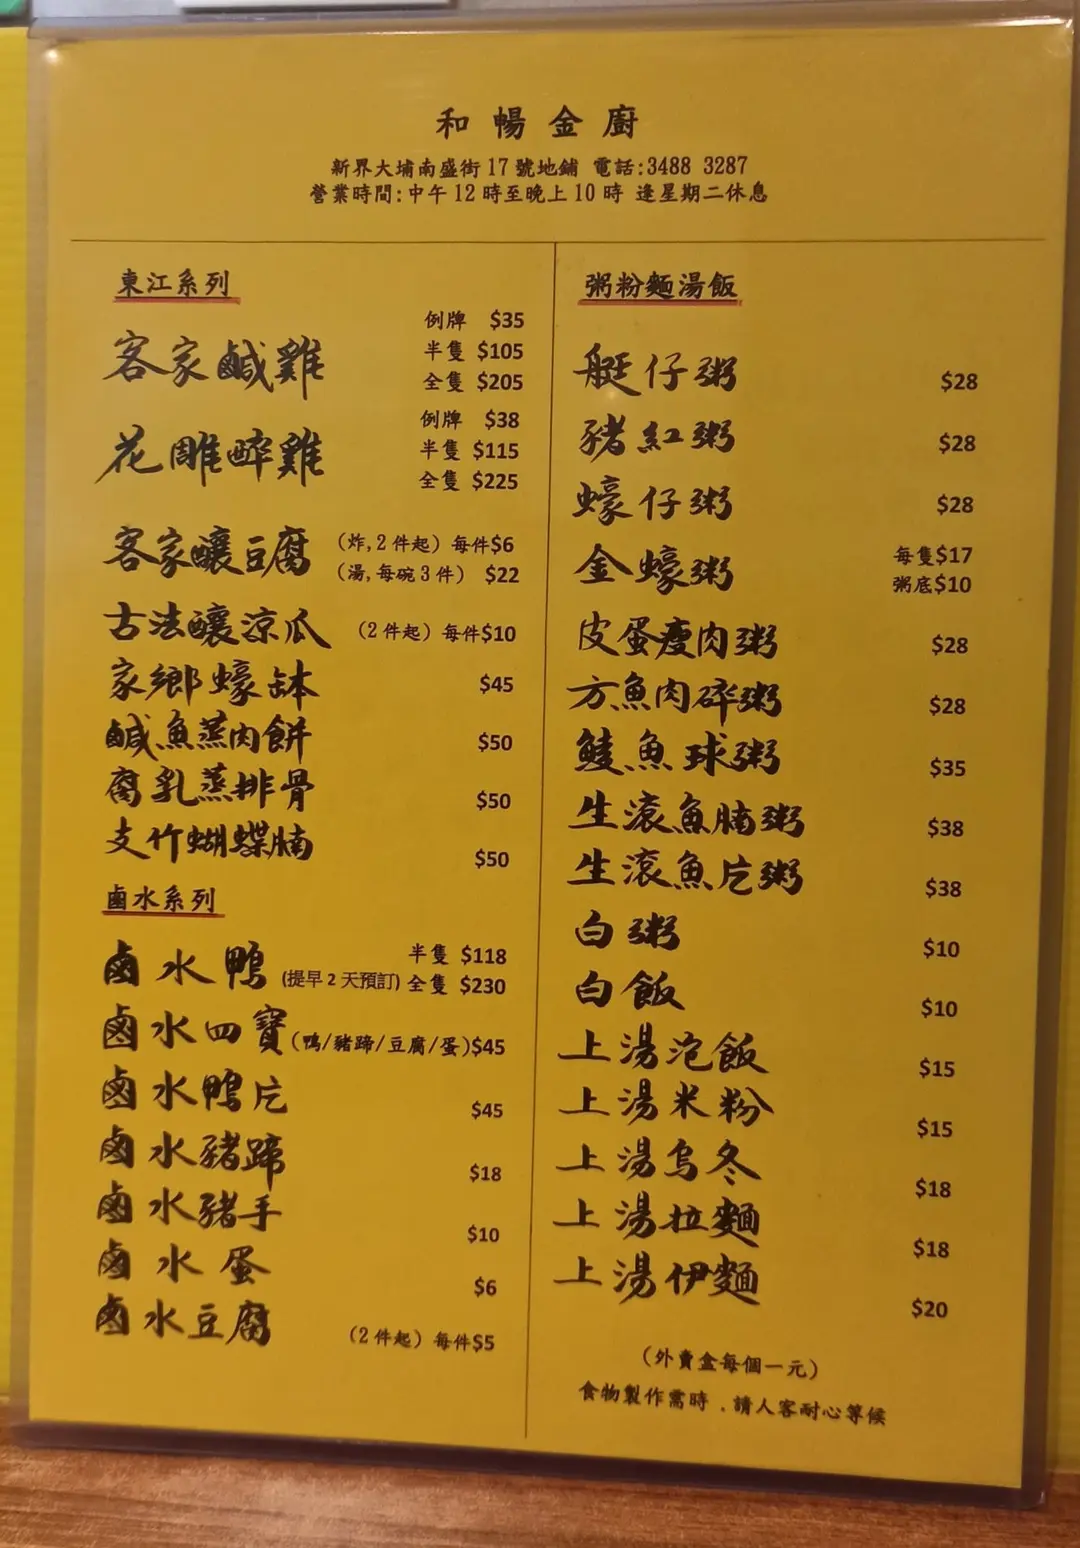 和暢金廚
新界大埔南盛街17號地鋪 電話:3488 3287
營業時間:中午12時至晚上10時 逢星期二休息
東江系列
客家鹹雞 例牌 $35
半隻 $105
全隻 $205
花雕醉雞 例牌 $38
半隻 $115
全隻 $225
客家釀豆腐 (炸,2件起) 每件$6
(湯,每碗3件) $22
古法釀涼瓜 (2件起) 每件$10
家鄉蠔缽 $45
鹹魚蒸肉餅 $50
腐乳蒸排骨 $50
支竹蝴蝶腩 $50
鹵水系列
鹵水鴨 (提早2天預訂) 半隻 $118
全隻 $230
鹵水四寶 (鴨/豬蹄/豆腐/蛋)$45
鹵水鴨片 $45
鹵水豬蹄 $18
鹵水豬手 $10
鹵水蛋 $6
鹵水豆腐 (2件起) 每件$5
粥粉麵湯飯
艇仔粥 $28
豬紅粥 $28
蠔仔粥 $28
金蠔粥 每隻$17
粥底$10
皮蛋瘦肉粥 $28
方魚肉碎粥 $28
鯪魚球粥 $35
生滾魚腩粥 $38
生滾魚片粥 $38
白粥 $10
白飯 $10
上湯泡飯 $15
上湯米粉 $15
上湯烏冬 $18
上湯拉麵 $18
上湯伊麵 $20
(外賣盒每個一元)
食物製作需時﹐請人客耐心等候